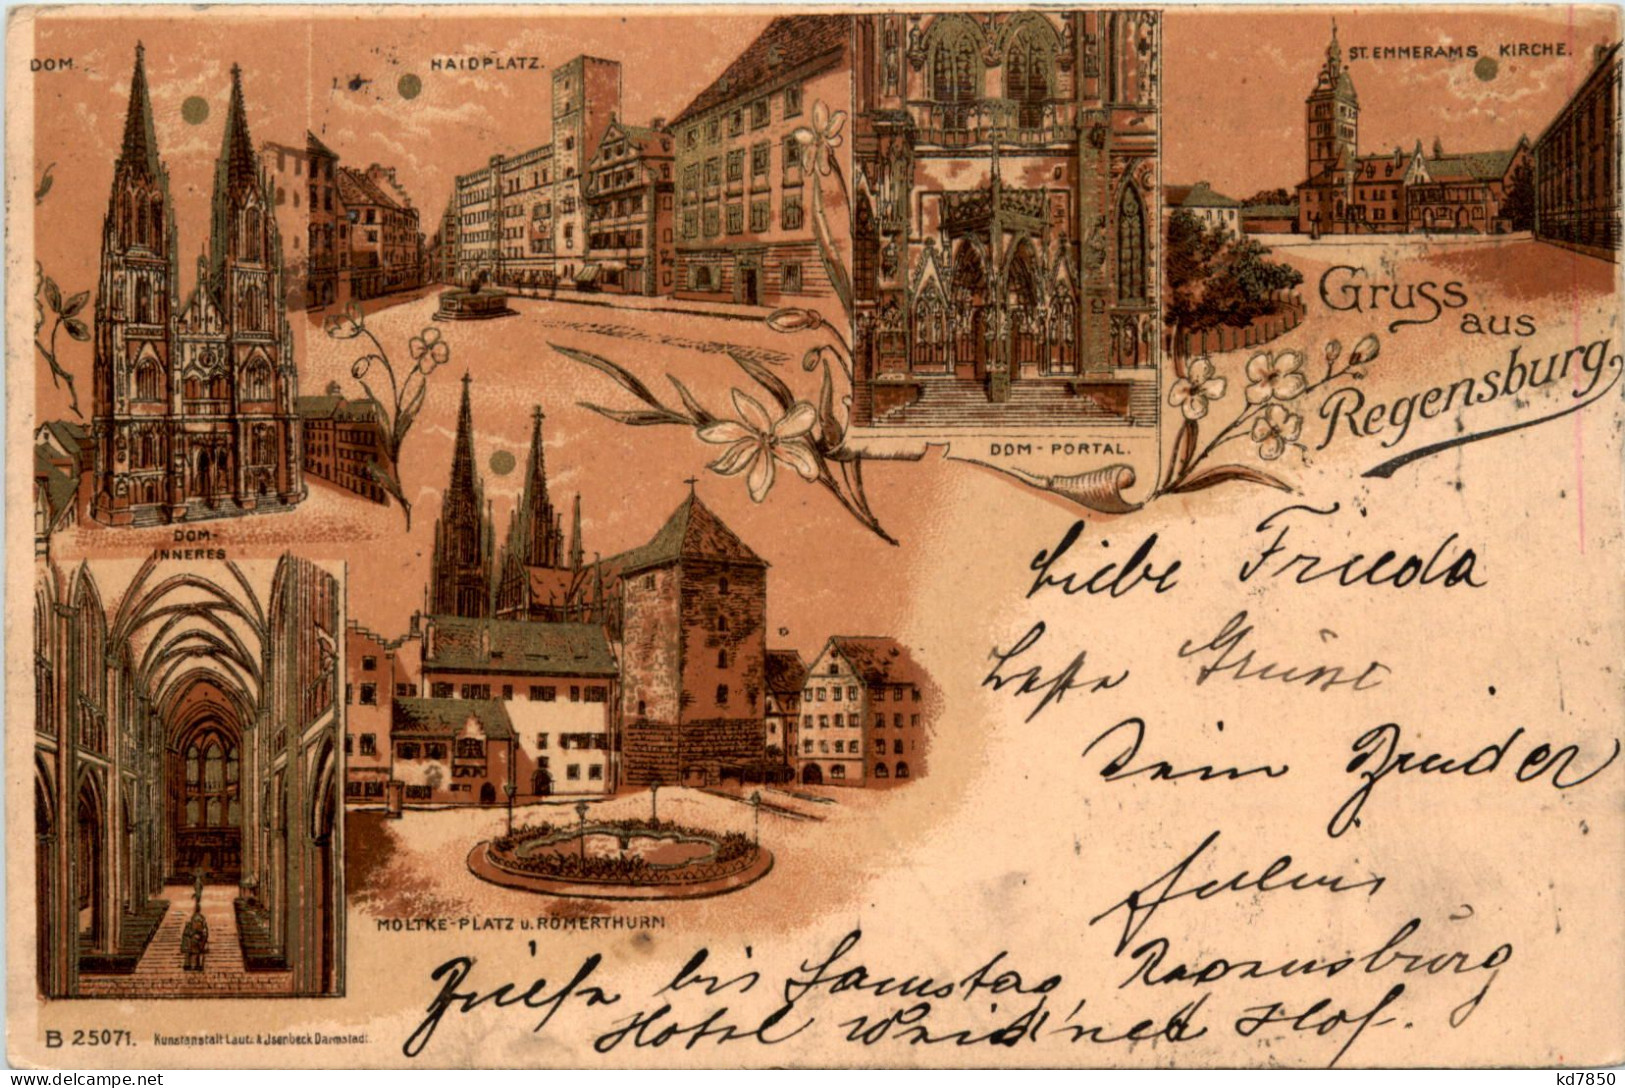 DOM.
HAIDPLATZ.
ST. EMMERAMS KIRCHE.
Gruss
aus
Regensburg
DOM-PORTAL.
DOM-
INNERES
MOLTKE-PLATZ u. RÖMERTHURM
Liebe Frieda
beste Grüsse
Dein Bruder
Julius
Briefe bis Samstag Regensburg
Hotel Weidenhof.
B 25071. Kunstanstalt Lautz & Jsenbeck Darmstadt.
kd7850